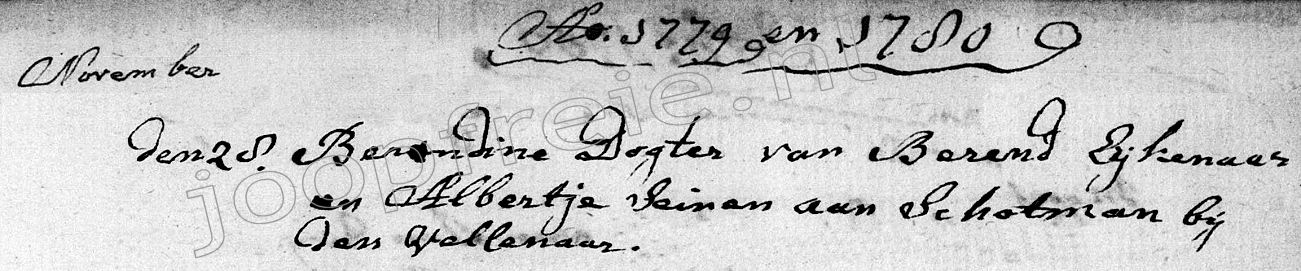 Ao. 1779 en 1780
November
den 28. Berendine Dogter van Berend Eijkenaar
en Albertje Seinen aan Schotman bij
den Vellenaar.
joopreie.nl